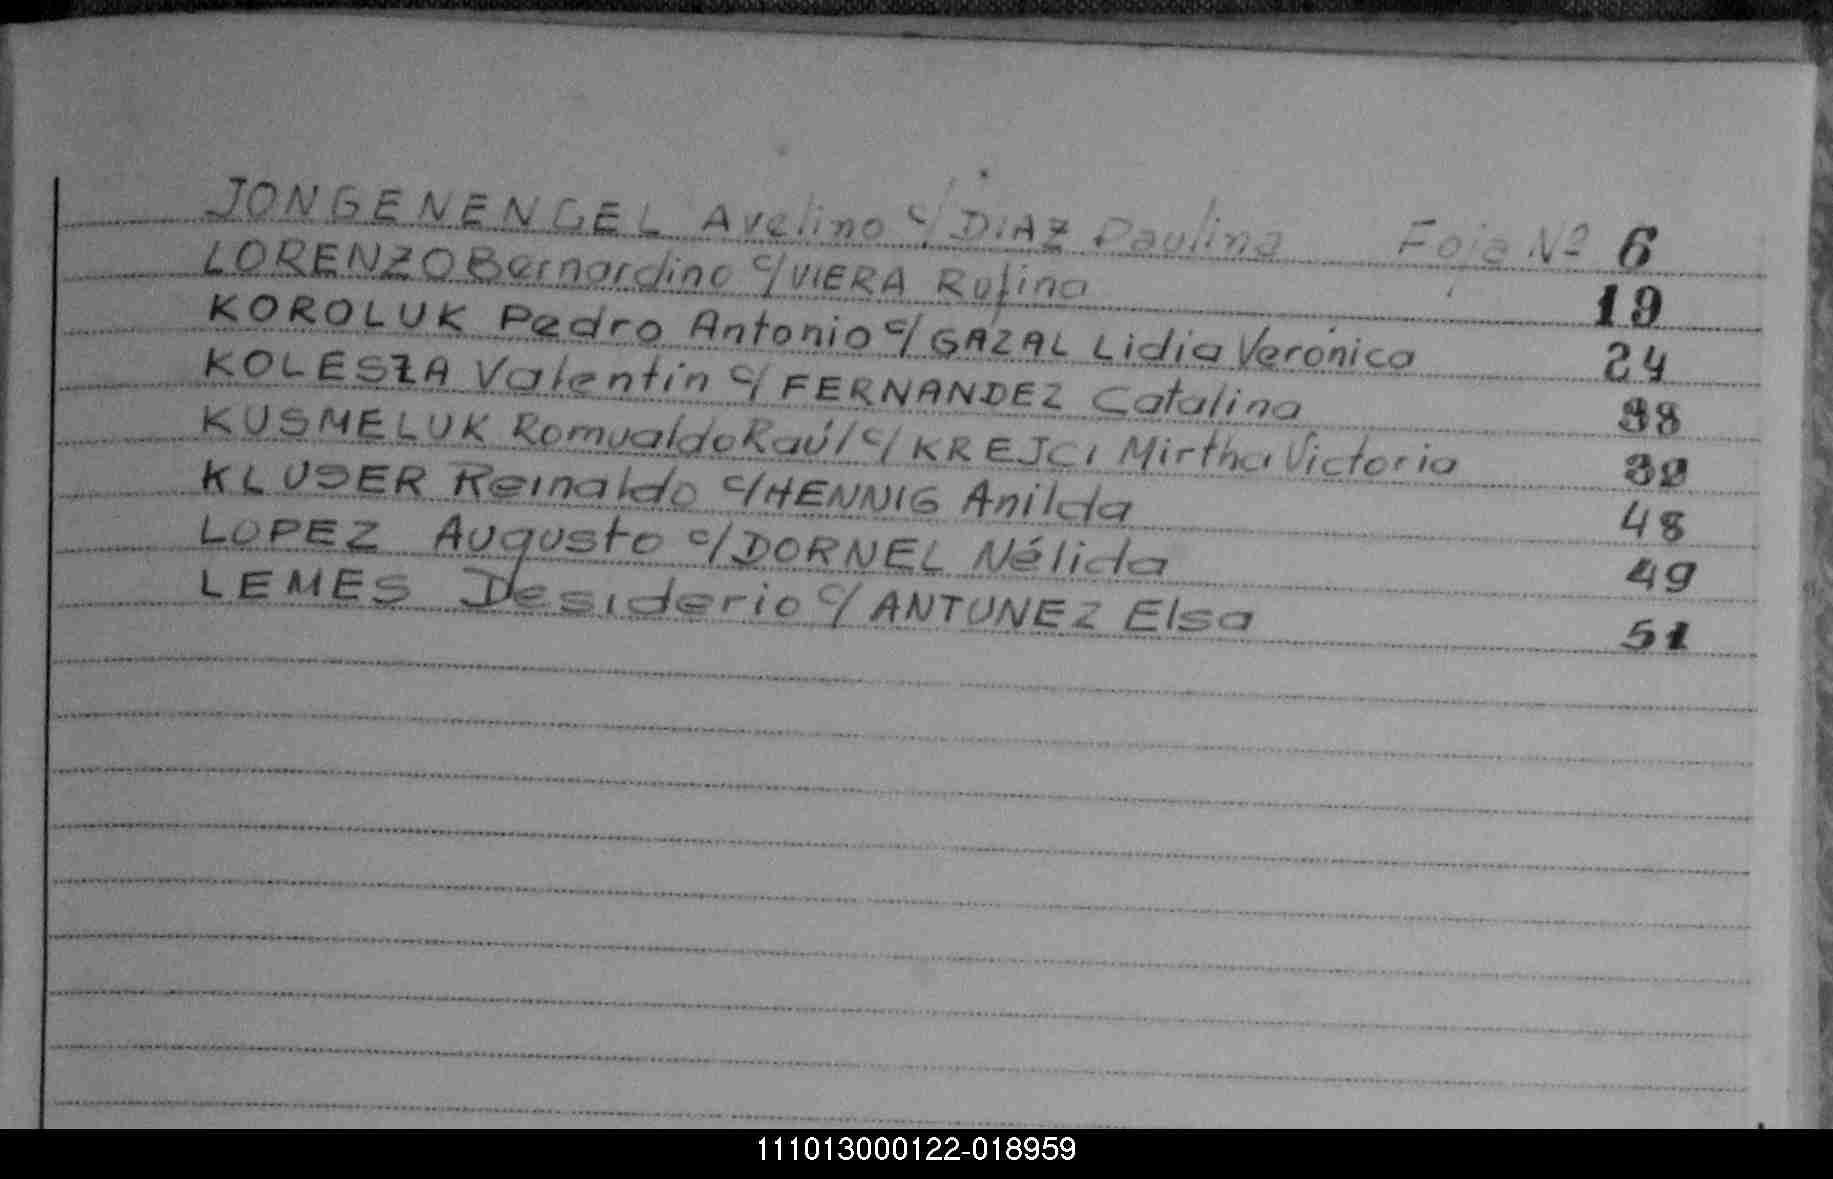 JONGENENGEL Avelino c/ DIAZ Paulina Foja Nº 6
LORENZO Bernardino c/ VIERA Rufina 19
KOROLUK Pedro Antonio c/ GAZAL Lidia Verónica 24
KOLESZA Valentín c/ FERNANDEZ Catalina
KUSMELUK Romualdo Raúl c/ KREJCI Mirtha Victoria
KLUSER Reinaldo c/ HENNIG Anilda 48
LOPEZ Augusto c/ DORNEL Nélida 49
LEMES Desiderio c/ ANTUNEZ Elsa 51
111013000122-018959